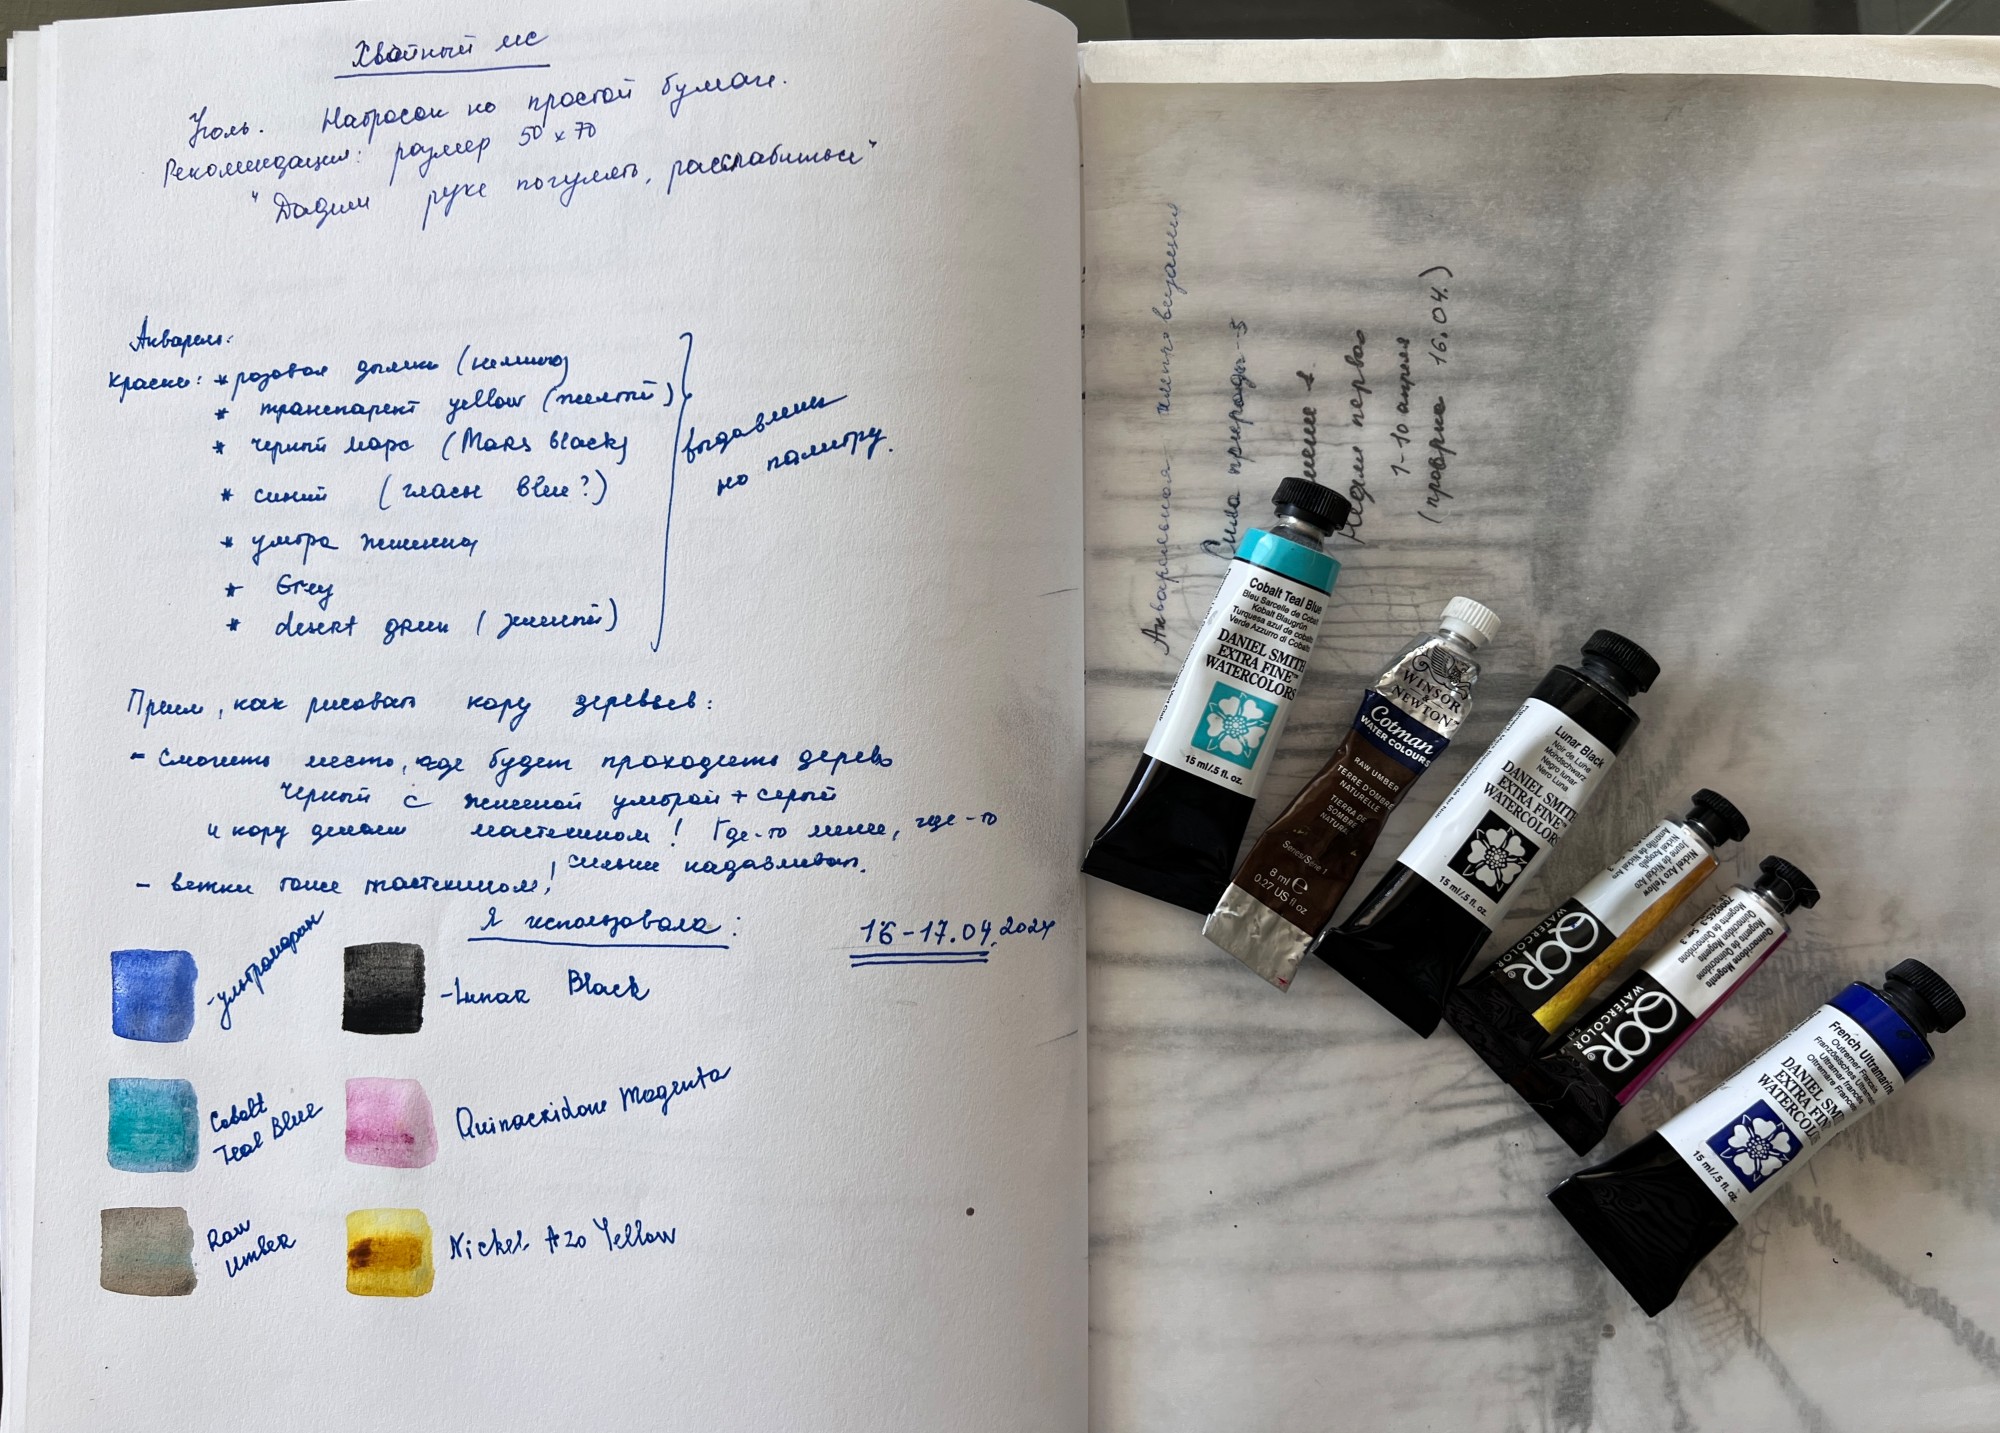 Хвойный лес
Уголь. Набросок на простой бумаге.
Рекомендация: размер 50 х 70
"Дадим руке погулять, расслабиться"
Акварель:
Краски: * розовая дымка (немного)
* транспарент yellow (желтый)
* черный марс (Mars black)
* синий ( blue?)
* умбра жженная
* Grey
* desert green (зеленый)
выдавили
на палитру.
Прием, как рисовать кору деревьев:
- Смочить место, где будет проходить дерево
черный с жженой умброй + серый
и кору делаем мастихином! Где-то менее, где-то
сильнее надавливая.
- ветки тоже мастихином!
Я использовала:
16-17.04.2024
- ультрамарин
- Lunar Black
Cobalt
Teal Blue
Quinacridone Magenta
Raw
Umber
Nickel Azo Yellow
Акварельная
Сила природы-5
Неделя первая
1-10 апреля
(проверка 16.04.)
Cobalt Teal Blue
Bleu Sarcelle de Cobalt
Kobalt Blaugrün
Turquesa azul de cobalto
Verde Azzurro di Cobalto
DANIEL SMITH
EXTRA FINE™
WATERCOLORS
15 ml/.5 fl. oz.
WINSOR
&
NEWTON
Cotman
WATER COLOURS
RAW UMBER
TERRE D'OMBRE
NATURELLE
TIERRA DE
SOMBRA
NATURAL
Series/Série 1
8 ml e
0.27 US fl oz
Lunar Black
Noir de Lune
Mondschwarz
Negro lunar
Nero Luna
DANIEL SMITH
EXTRA FINE™
WATERCOLORS
15 ml/.5 fl. oz.
Nickel Azo Yellow
Jaune de Nickel Azo
Nickel Azogelb
Amarillo de Nickel Azo
QOR
WATERCOLOR
Quinacridone Magenta
Magenta de Quinacridone
QOR®
WATERCOLOR
French Ultramarine
Outremer Français
Französisches Ultramarin
Ultramar francés
Oltremare Francese
DANIEL SMI
EXTRA FIN
WATERCOLO
15 ml/.5 fl. oz.